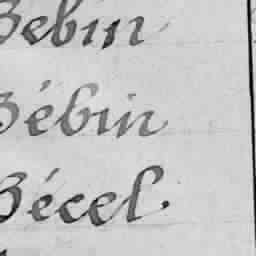 Bebin
Bébin
Bécel.